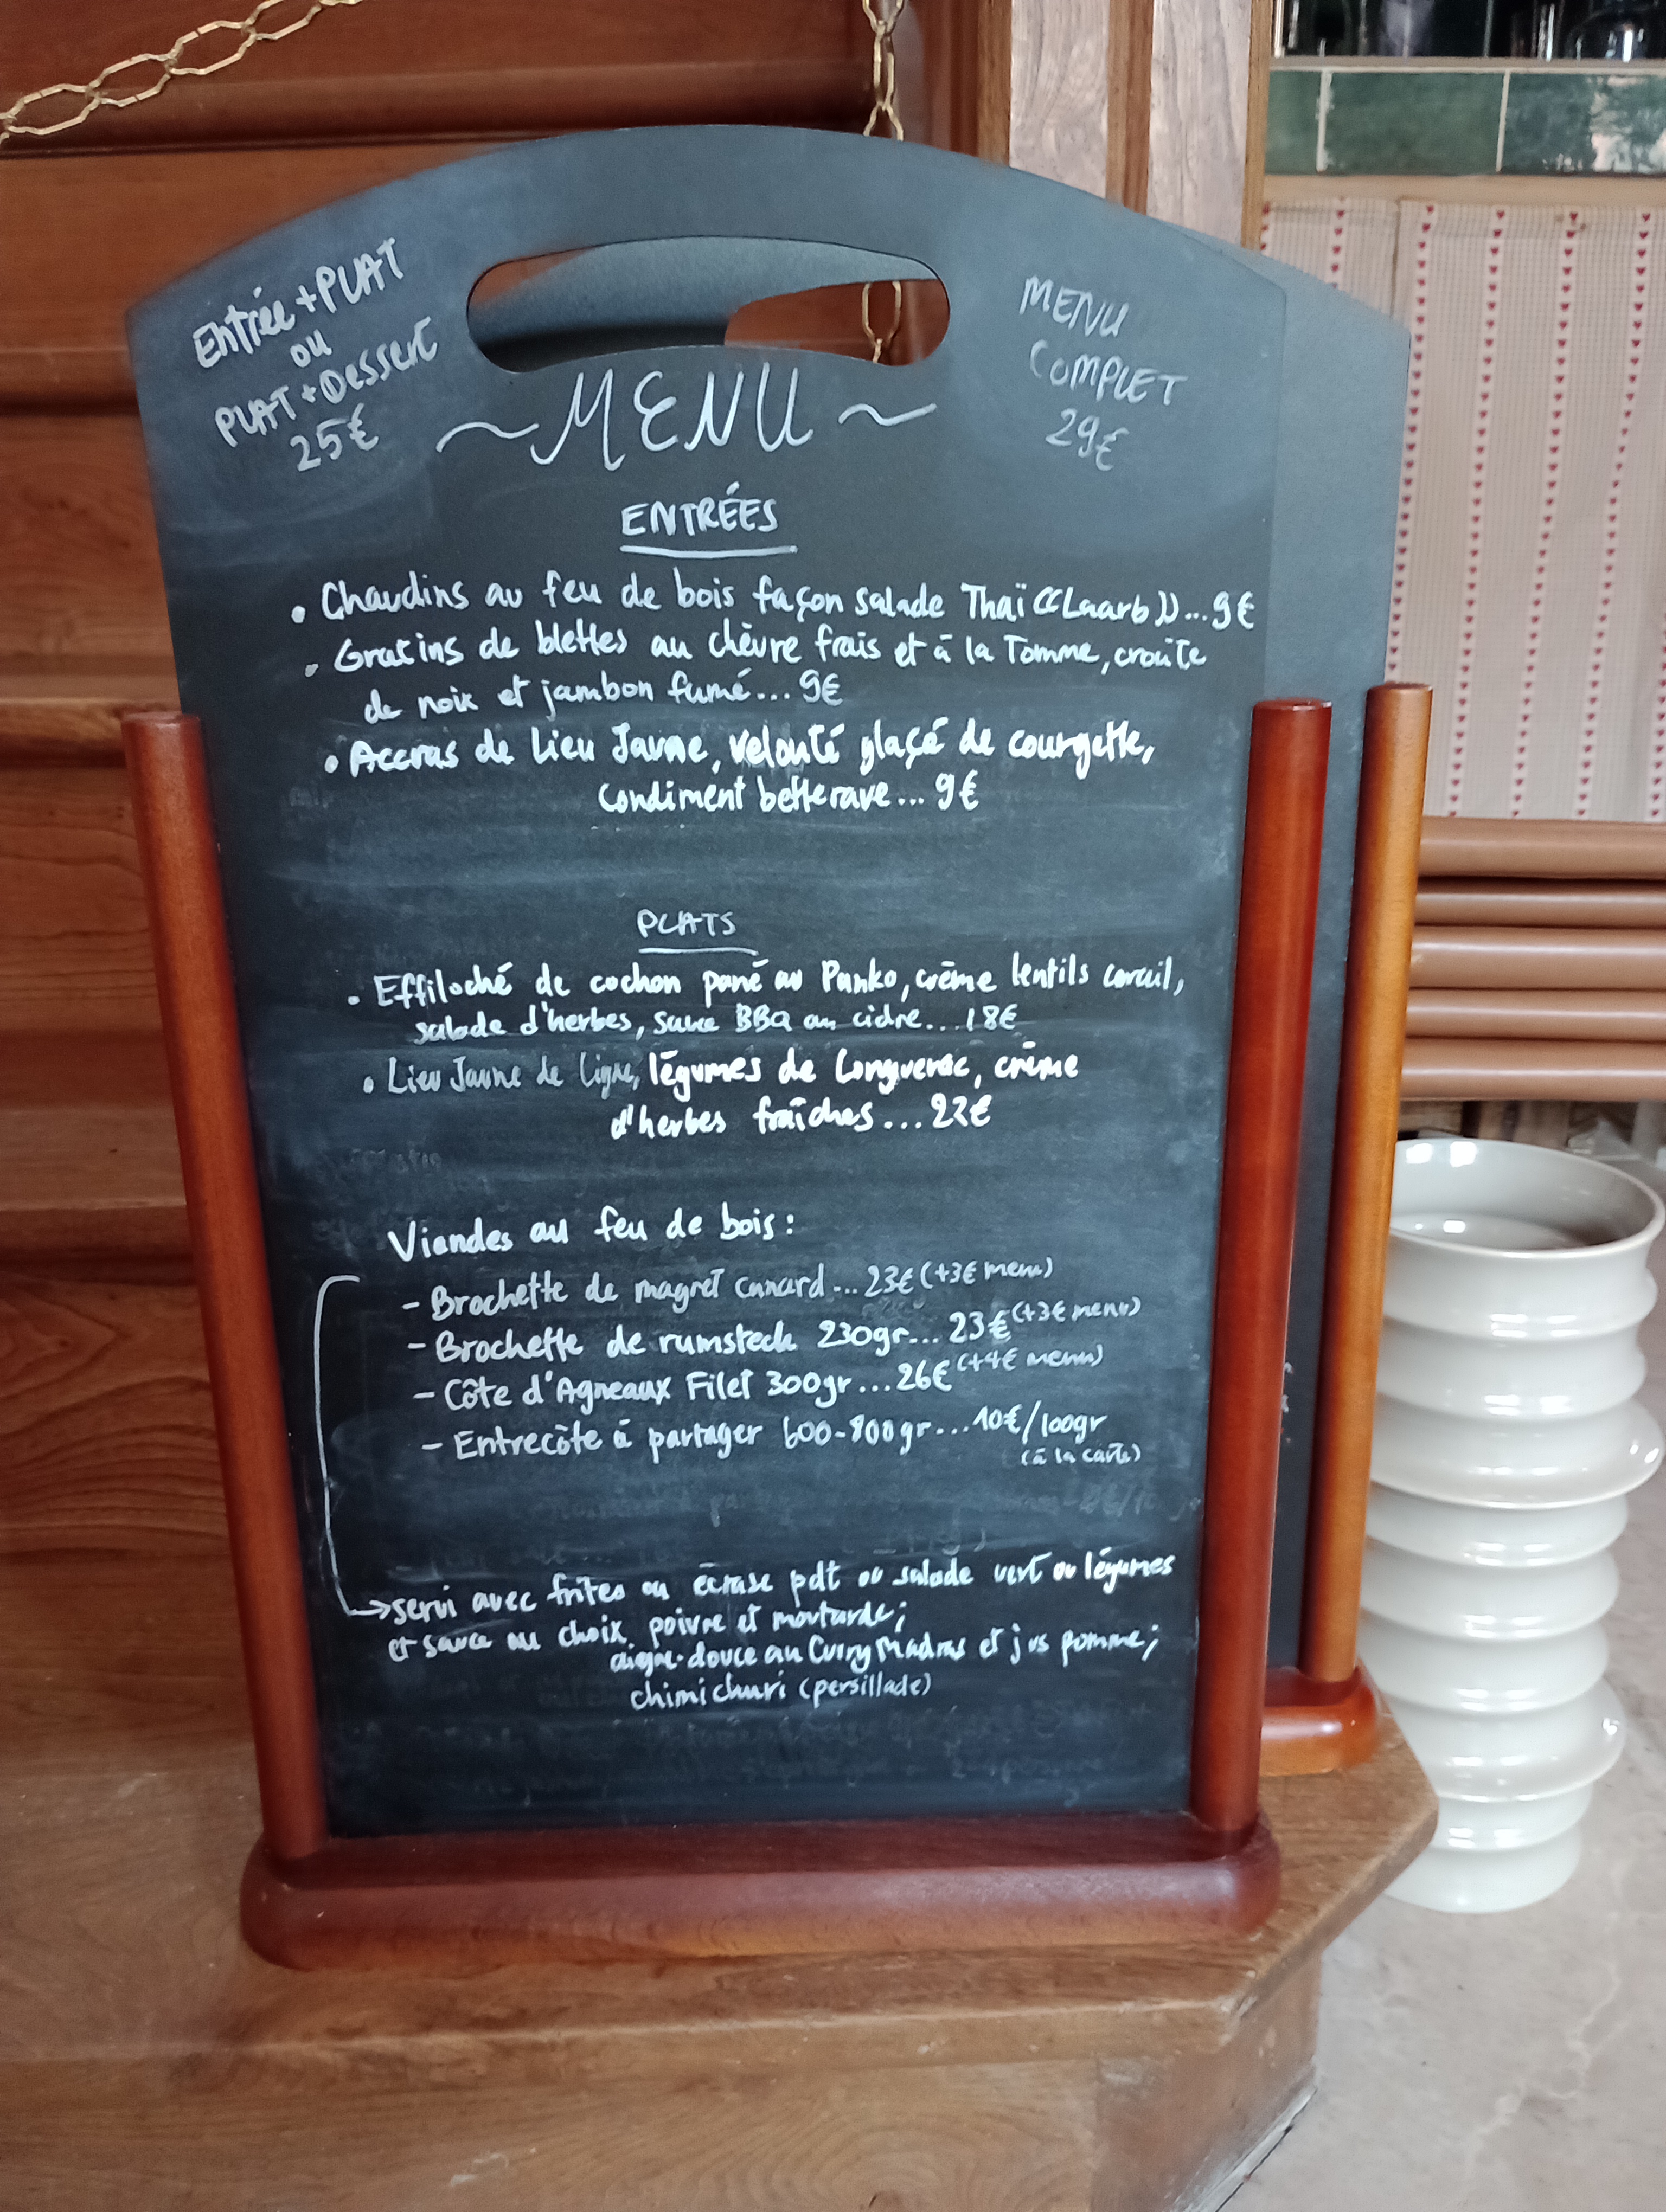 Entrée + PLAT
ou
PLAT + Dessert
25€
MENU
COMPLET
29€
~ MENU ~
ENTRÉES
• Chaudins au feu de bois façon salade Thaï ((Laarb))...9€
• Gratins de blettes au chèvre frais et à la Tomme, croûte
de noix et jambon fumé... 9€
• Accras de Lieu Jaune, velouté glaçé de courgette,
condiment betterave... 9€
PLATS
• Effiloché de cochon pané au Panko, crème lentils corail,
salade d'herbes, sauce BBQ au cidre...18€
• Lieu Jaune de Ligne, légumes de Longuerac, crème
d'herbes fraîches...22€
Viandes au feu de bois :
- Brochette de magret canard...23€ (+3€ menu)
- Brochette de rumsteck 230gr... 23€ (+3€ menu)
- Côte d'Agneaux Filet 300gr...26€ (+4€ menu)
- Entrecôte à partager 600-800gr...10€/100gr
(à la carte)
→ servi avec frites ou écrasé pdt ou salade vert ou légumes
et sauce au choix. poivre et moutarde;
aigre-douce au Curry Madras et jus pomme;
chimichuri (persillade)